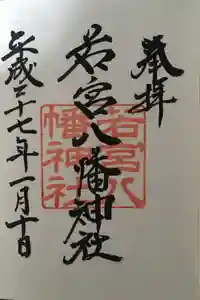 奉拝
若宮八幡神社
若宮八
幡神社
平成二十七年一月十日